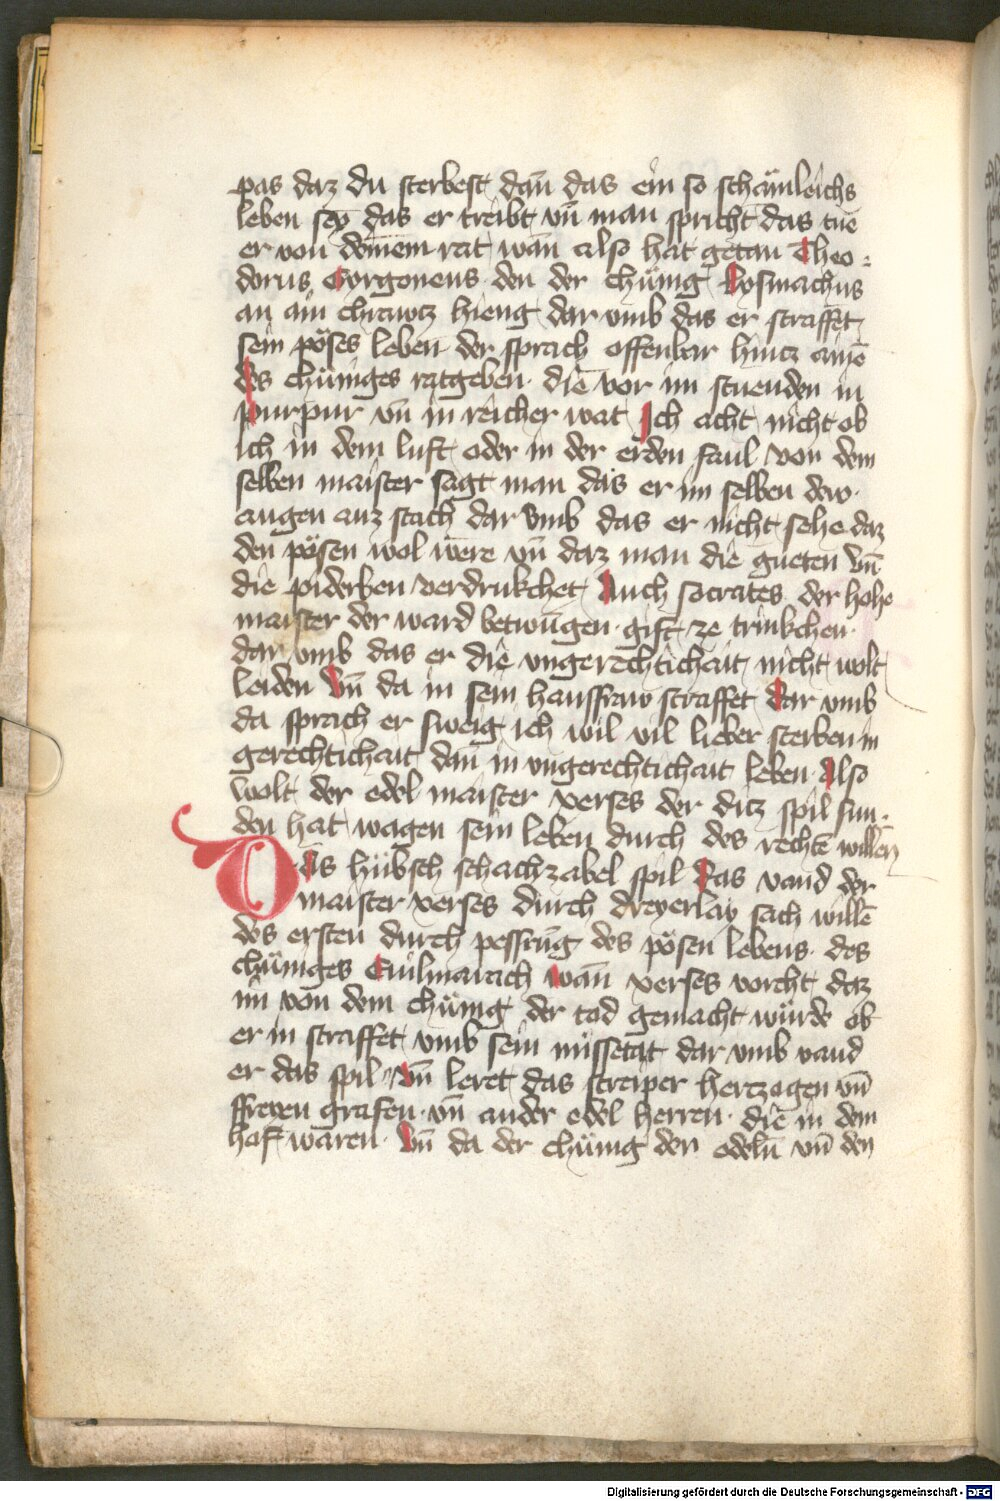 pas daz du sterbest dan̄ das ein so schämleichs
leben sey das er treibt vn̄ man spricht das tue
er von deinem rat wan̄ also hat getan Theo :
dorus Cyrgonens den der chünig Lysmachus
an ain chrawtz hieng dar vmb das er straffet
sein pöses leben der sprach offenbar hintz aine̅
des chüniges ratgeben die vor im stuenden in
purpur vn̄ in reicher wat Ich acht nicht ob
ich in dem luft oder in der erden faul von dem
selben maister sagt man das er im selben dew
augen auz stach dar vmb das er nicht sehe daz
den pösen wol were vn̄ daz man die gueten vn̄
die piderben verdrukchet Auch socrates der hohe
maister der ward betwūgen gift ze trinkchen
dar vmb das er die vngerechtichait nicht wolt
leiden Vn̄ da in sein hausfraw straffet dar vmb
da sprach er sweig ich wil vil lieber sterben in
gerechtichait dan̄ in vngerechtichait leben Also
wolt der edel maister xerses der ditz spil fun ·
den hat wagen sein leben durch des rechte̅ willen
Das hübsch schachzabel spil das vand der
maister xerses durch dreyerlay sach wille̅
des ersten durch pessrūg des pösen lebens des
chüniges Euilmarach wan̄ xerses vorcht daz
im von dem chünig der tod gemacht würde ob
er in straffet vmb sein missetat dar vmb vand
er das spil Vn̄ leret das streiper hertzogen vn̄
ffreyen grafen vn̄ ander edel herren die in dem
hof waren Vn̄ da der chünig den edeln̄ vn̄ den
Digitalisierung gefördert durch die Deutsche Forschungsgemeinschaft - DFG